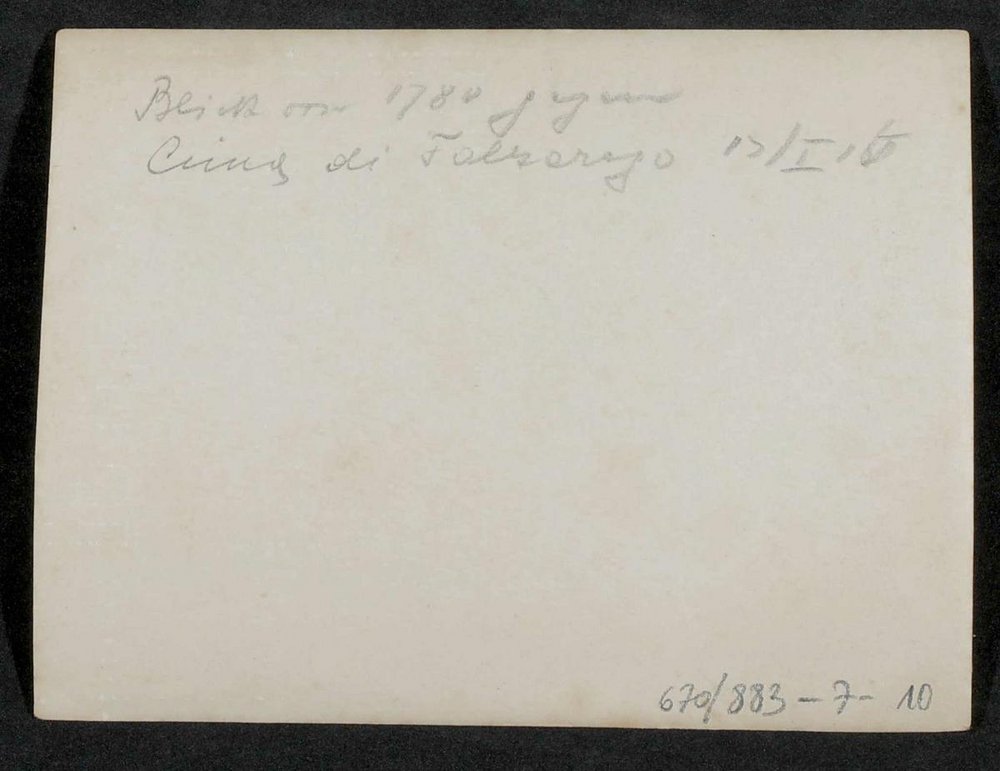 Blick von 1780 gegen
Cima di Falzarego 17/I 16
670/883-7-10